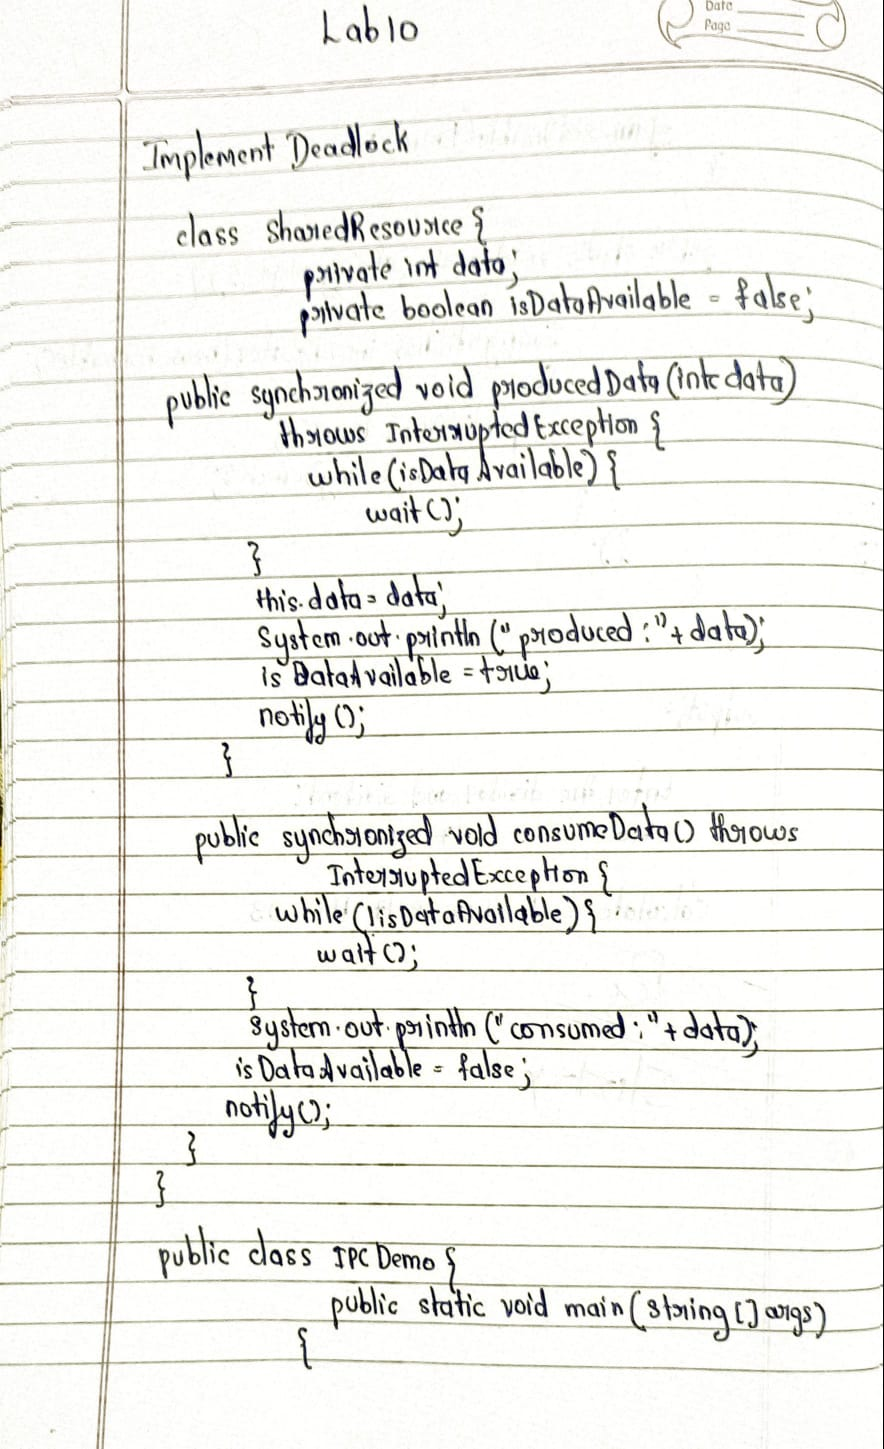 Lab10
Date
Page
Implement Deadlock
class SharedResource {
private int data;
private boolean isDataAvailable = false;
public synchronized void producedData (int data)
throws InterruptedException {
while (isDataAvailable) {
wait ();
}
this.data = data;
System.out.println (" produced : " + data);
is DataAvailable = true;
notify ();
}
public synchronized void consumeData () throws
InterruptedException {
while (!isDataAvailable) {
wait ();
}
System.out.println ("consumed : " + data);
is DataAvailable = false;
notify ();
}
}
public class IPC Demo {
public static void main (String [] args)
{